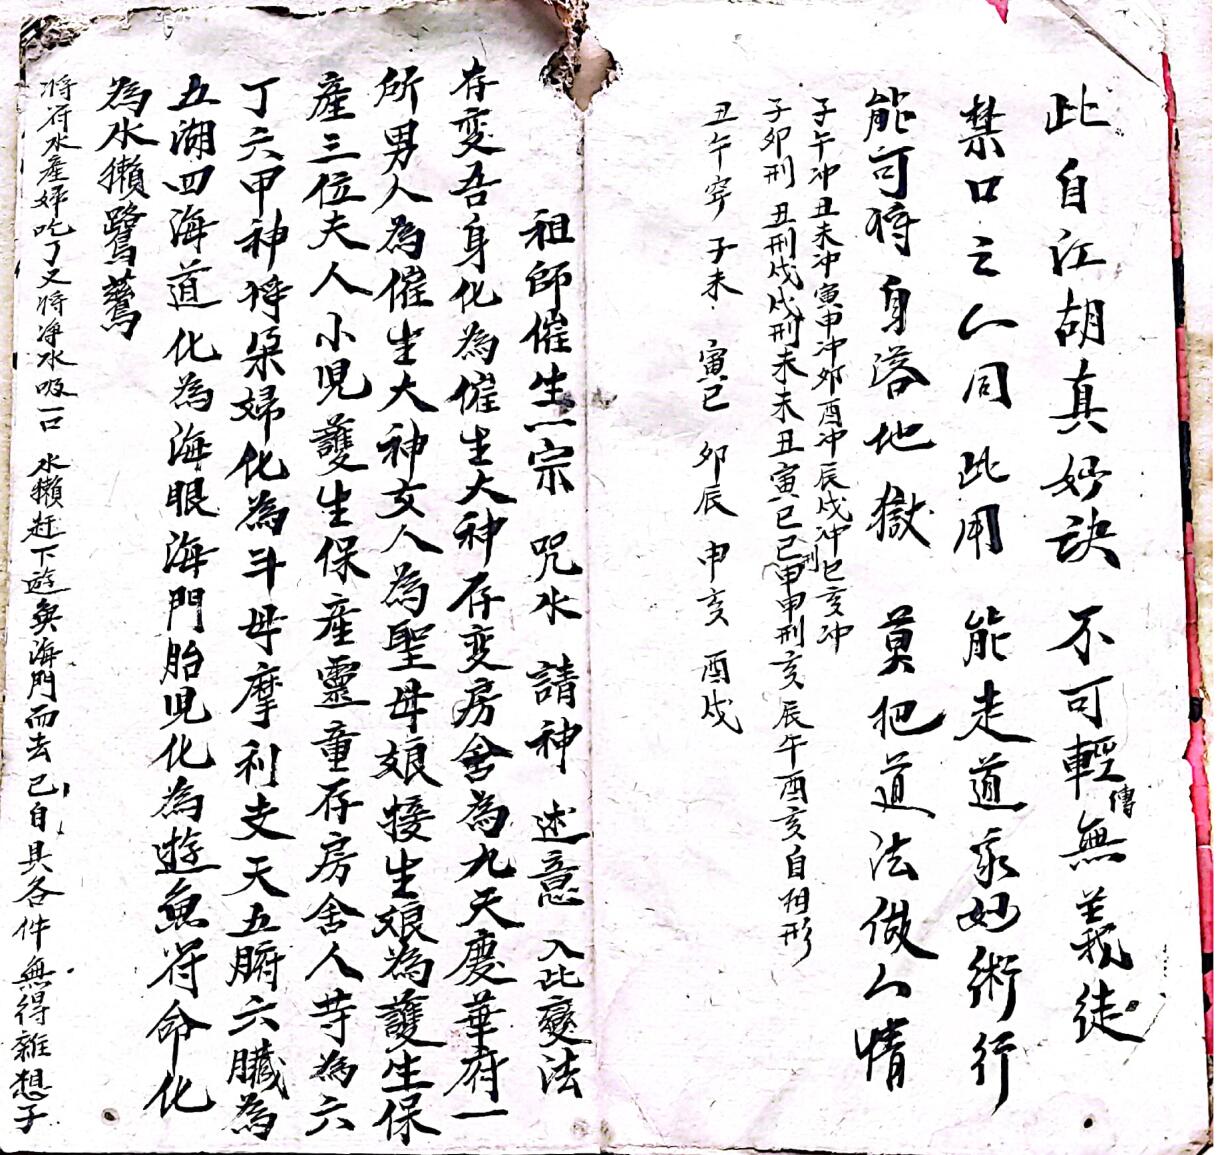 此自江胡真妙訣 不可輕傳無義徒
禁口之人同此用 能走道家妙術行
能可將身落地獄 莫把道法做人情
子午冲丑未冲寅申冲卯酉冲辰戌冲巳亥冲
子卯刑 丑刑戌戌刑未未丑寅刑巳巳申申刑亥辰午酉亥自相形
丑午穿 子未 寅巳 卯辰 申亥 酉戌
祖師催生一宗 咒水 請神 述意 入此變法
存変吾身化為催生大神存変房舍為九天慶華府一
所男人為催生大神女人為聖母娘接生娘為護生保
產三位夫人小児護生保產靈童存房舍人等為六
丁六甲神將 婦化為斗母摩利支天五腑六臟為
五湖四海道化為海眼海門胎児化為遊魚符命化
為水獺鷺鶿
將符水產婦吃了又將净水吸一口 水獺赶下遊魚海門而去己自具各件無得雜想子